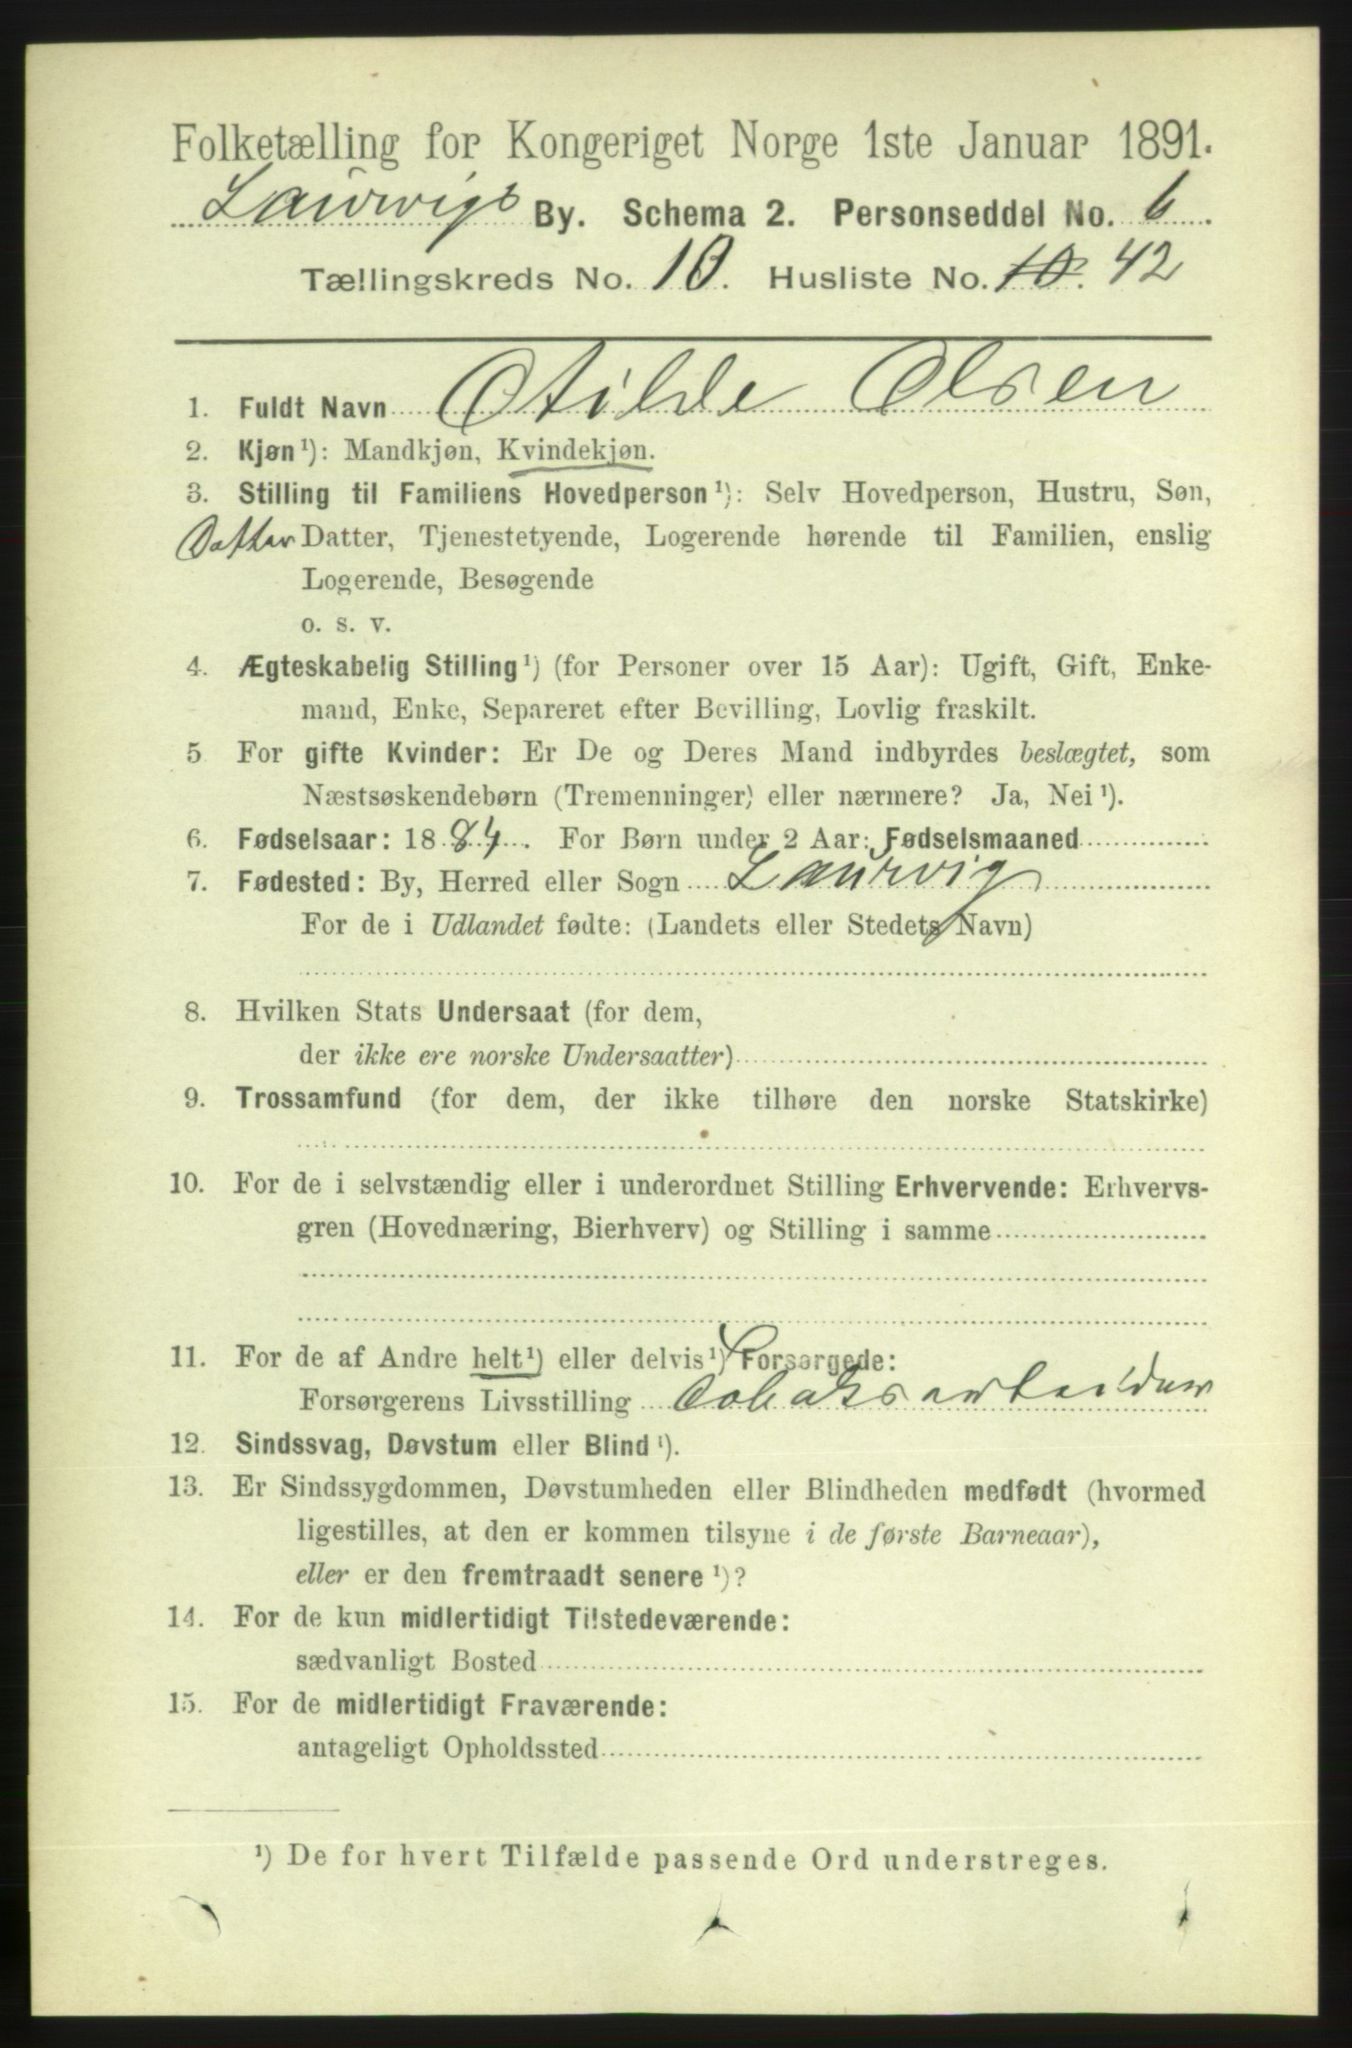 Folketælling for Kongeriget Norge 1ste Januar 1891.
Laurvigs By. Schema 2. Personseddel No. 6.
Tællingskreds No. 10. Husliste No. 10. 42
1. Fuldt Navn Otilde Olsen
2. Kjøn ¹): Mandkjøn, Kvindekjøn.
3. Stilling til Familiens Hovedperson ¹): Selv Hovedperson, Hustru, Søn,
Datter Datter, Tjenestetyende, Logerende hørende til Familien, enslig
Logerende, Besøgende
o. s. v.
4. Ægteskabelig Stilling ¹) (for Personer over 15 Aar): Ugift, Gift, Enke-
mand, Enke, Separeret efter Bevilling, Lovlig fraskilt.
5 For gifte Kvinder: Er De og Deres Mand indbyrdes beslægtet, som
Næstsøskendebørn (Tremenninger) eller nærmere? Ja, Nei ¹).
6. Fødselsaar: 1884. For Børn under 2 Aar: Fødselsmaaned
7. Fødested: By, Herred eller Sogn Laurvig
For de i Udlandet fødte: (Landets eller Stedets Navn)
8. Hvilken Stats Undersaat (for dem,
der ikke ere norske Undersaatter)
9. Trossamfund (for dem, der ikke tilhøre den norske Statskirke)
10. For de i selvstændig eller i underordnet Stilling Erhvervende: Erhvervs-
gren (Hovednæring, Bierhverv) og Stilling i samme
11. For de af Andre helt ¹) eller delvis ¹) Forsørgede:
Forsørgerens Livsstilling Tobaksarbeider
12. Sindssvag, Døvstum eller Blind ¹).
13. Er Sindssygdommen, Døvstumheden eller Blindheden medfødt (hvormed
ligestilles, at den er kommen tilsyne i de første Barneaar),
eller er den fremtraadt senere ¹)?
14. For de kun midlertidigt Tilstedeværende:
sædvanligt Bosted
15. For de midlertidigt Fraværende:
antageligt Opholdssted
¹) De for hvert Tilfælde passende Ord understreges.